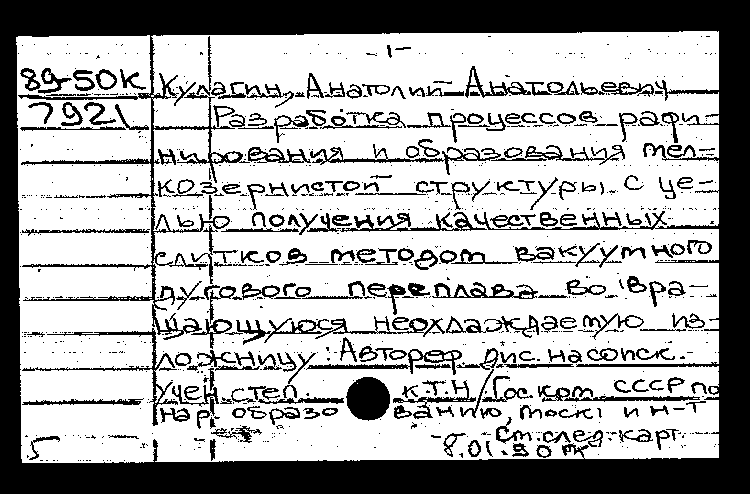 -1-
89-50К Кулагин, Анатолий Анатольевич
7921 Разработка процессов рафи-
нирования и образования мел-
козернистой структуры с це-
лью получения качественных
слитков методом вакуумного
дугового переплава во вра-
щающуюся неохлаждаемую из-
ложницу: Автореф. дис. на соиск.
учен. степ. к.т.н / Гос. ком. СССР по
нар. образованию, Моск. ин-т
См. след. карт.
5 8.01.90